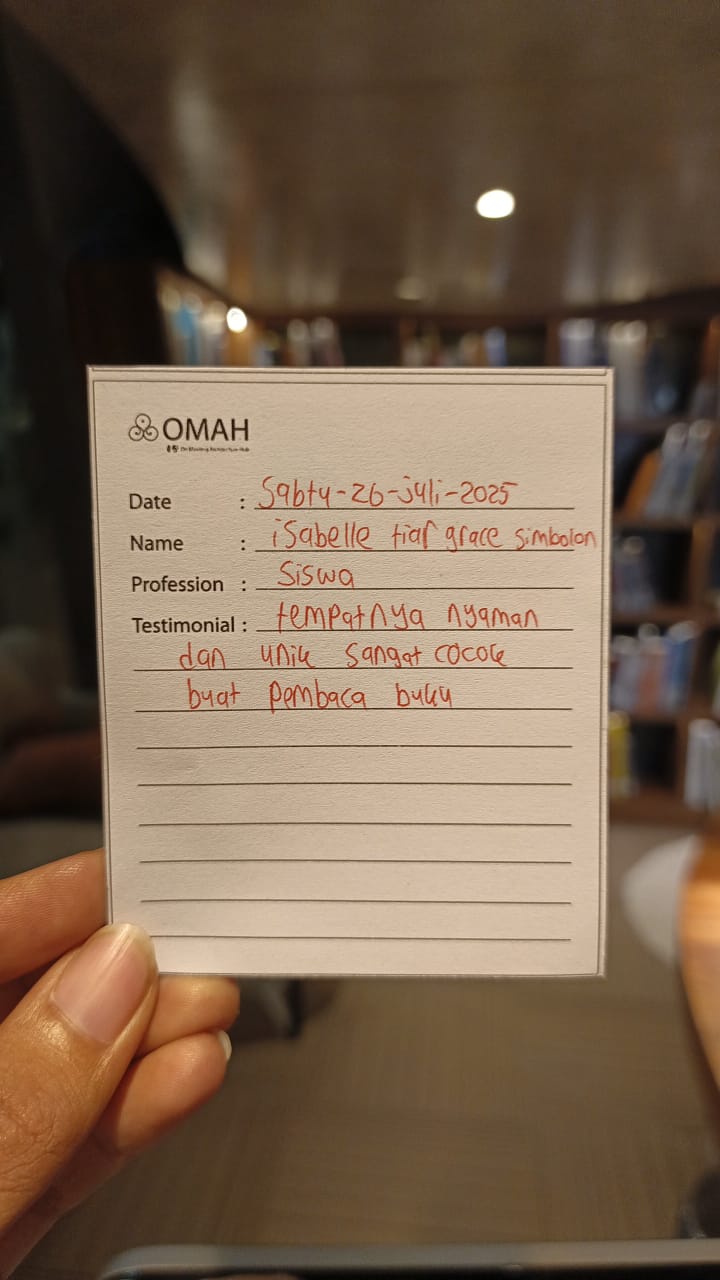 OMAH
Date : Sabtu-26-juli-2025
Name : isabelle tiar grace simbolon
Profession : Siswa
Testimonial : tempatnya nyaman
dan unik sangat cocok
buat pembaca buku